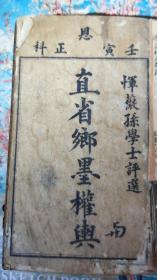 壬寅恩正科
惲薇孫學士評選
直省鄉墨權輿